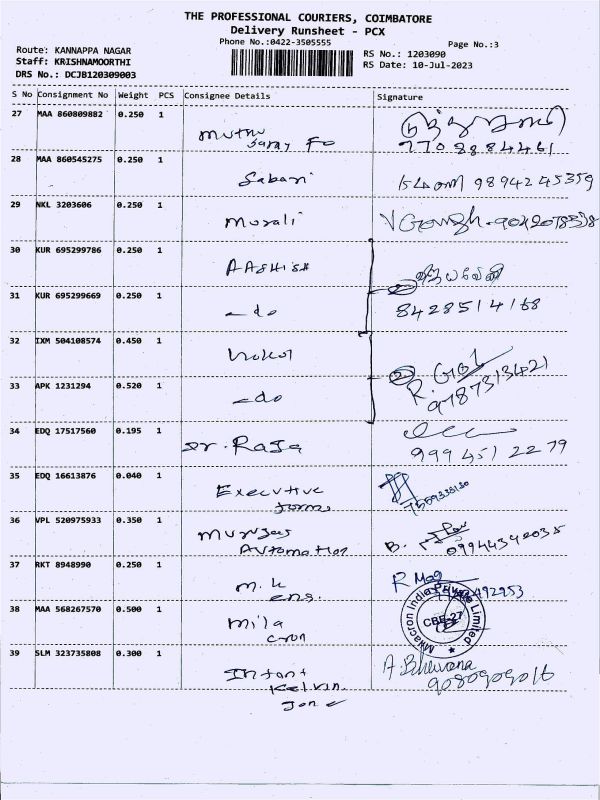 THE PROFESSIONAL COURIERS, COIMBATORE
Delivery Runsheet - PCX
Phone No.:0422-3505555
Page No.:3
Route: KANNAPPA NAGAR
Staff: KRISHNAMOORTHI
DRS No.: DCJB120309003
RS No.: 1203090
RS Date: 10-Jul-2023
S No Consignment No Weight PCS Consignee Details Signature
27 MAA 860809882 0.250 1
7708884461
28 MAA 860545275 0.250 1 Sabari 9894245359
29 NKL 3203606 0.250 1 Murali
30 KUR 695299786 0.250 1 AASHISH
31 KUR 695299669 0.250 1 -do 8428514168
32 IXM 504108574 0.450 1
33 APK 1231294 0.520 1 -do 9787313421
34 EDQ 17517560 0.195 1 Dr. Raja
9994512279
35 EDQ 16613876 0.040 1 Executive
36 VPL 520975933 0.350 1
Automation B. 09944342035
37 RKT 8948990 0.250 1 M. K
eng.
38 MAA 568267570 0.500 1 Mila
cron
Milacron India Private Limited
CBE-27
39 SLM 323735808 0.300 1 Infant A. Bhuvana
Kelvin 9080909016